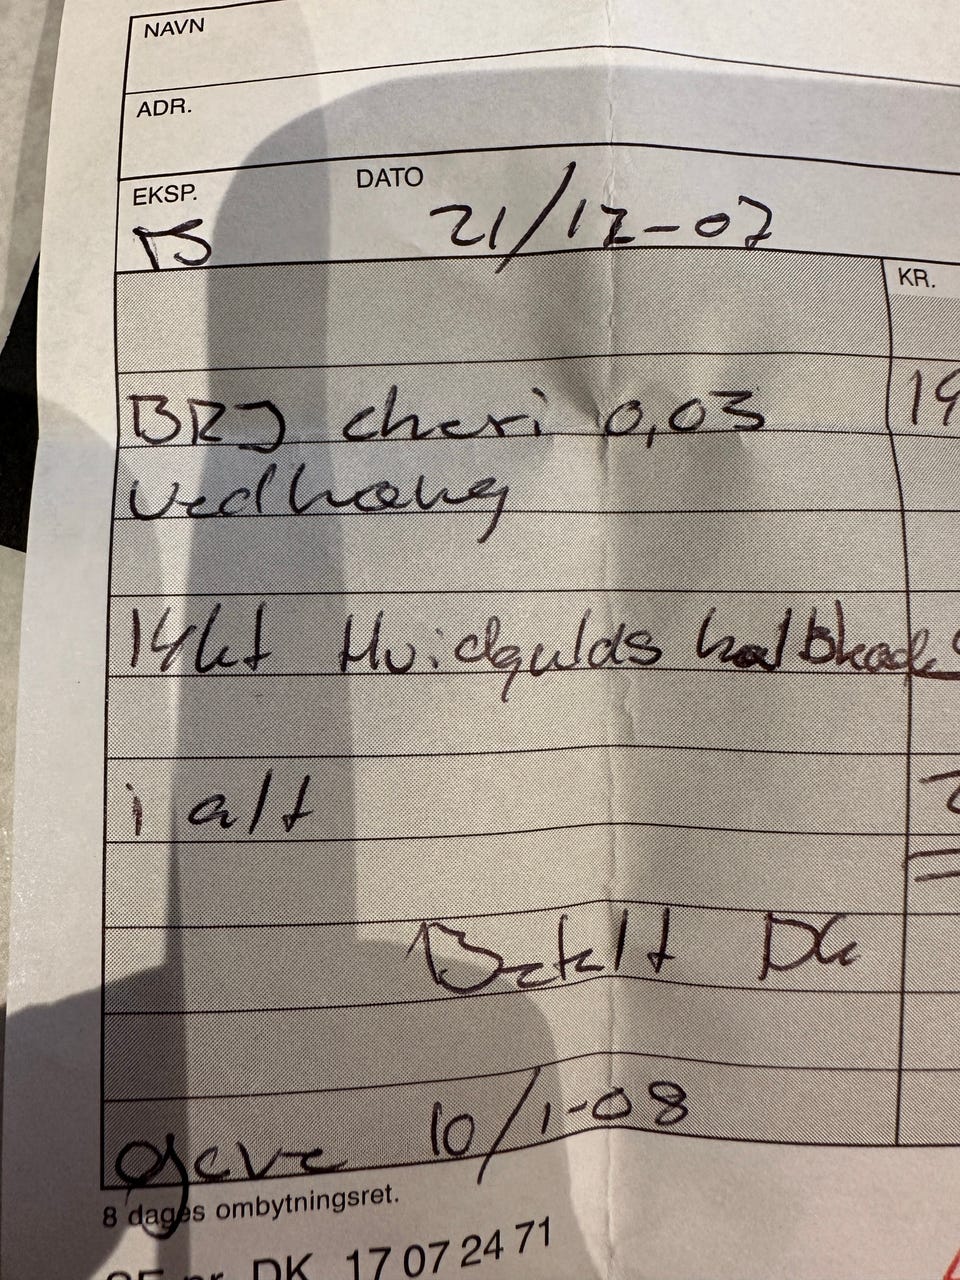 NAVN
ADR.
EKSP. DATO
B 21/12-07
KR.
BRJ cheri 0,03 19
Vedhæng
14kt Hvidgulds
i alt
Betalt DK
gave 10/1-08
8 dages ombytningsret.
SE nr. DK 17 07 24 71